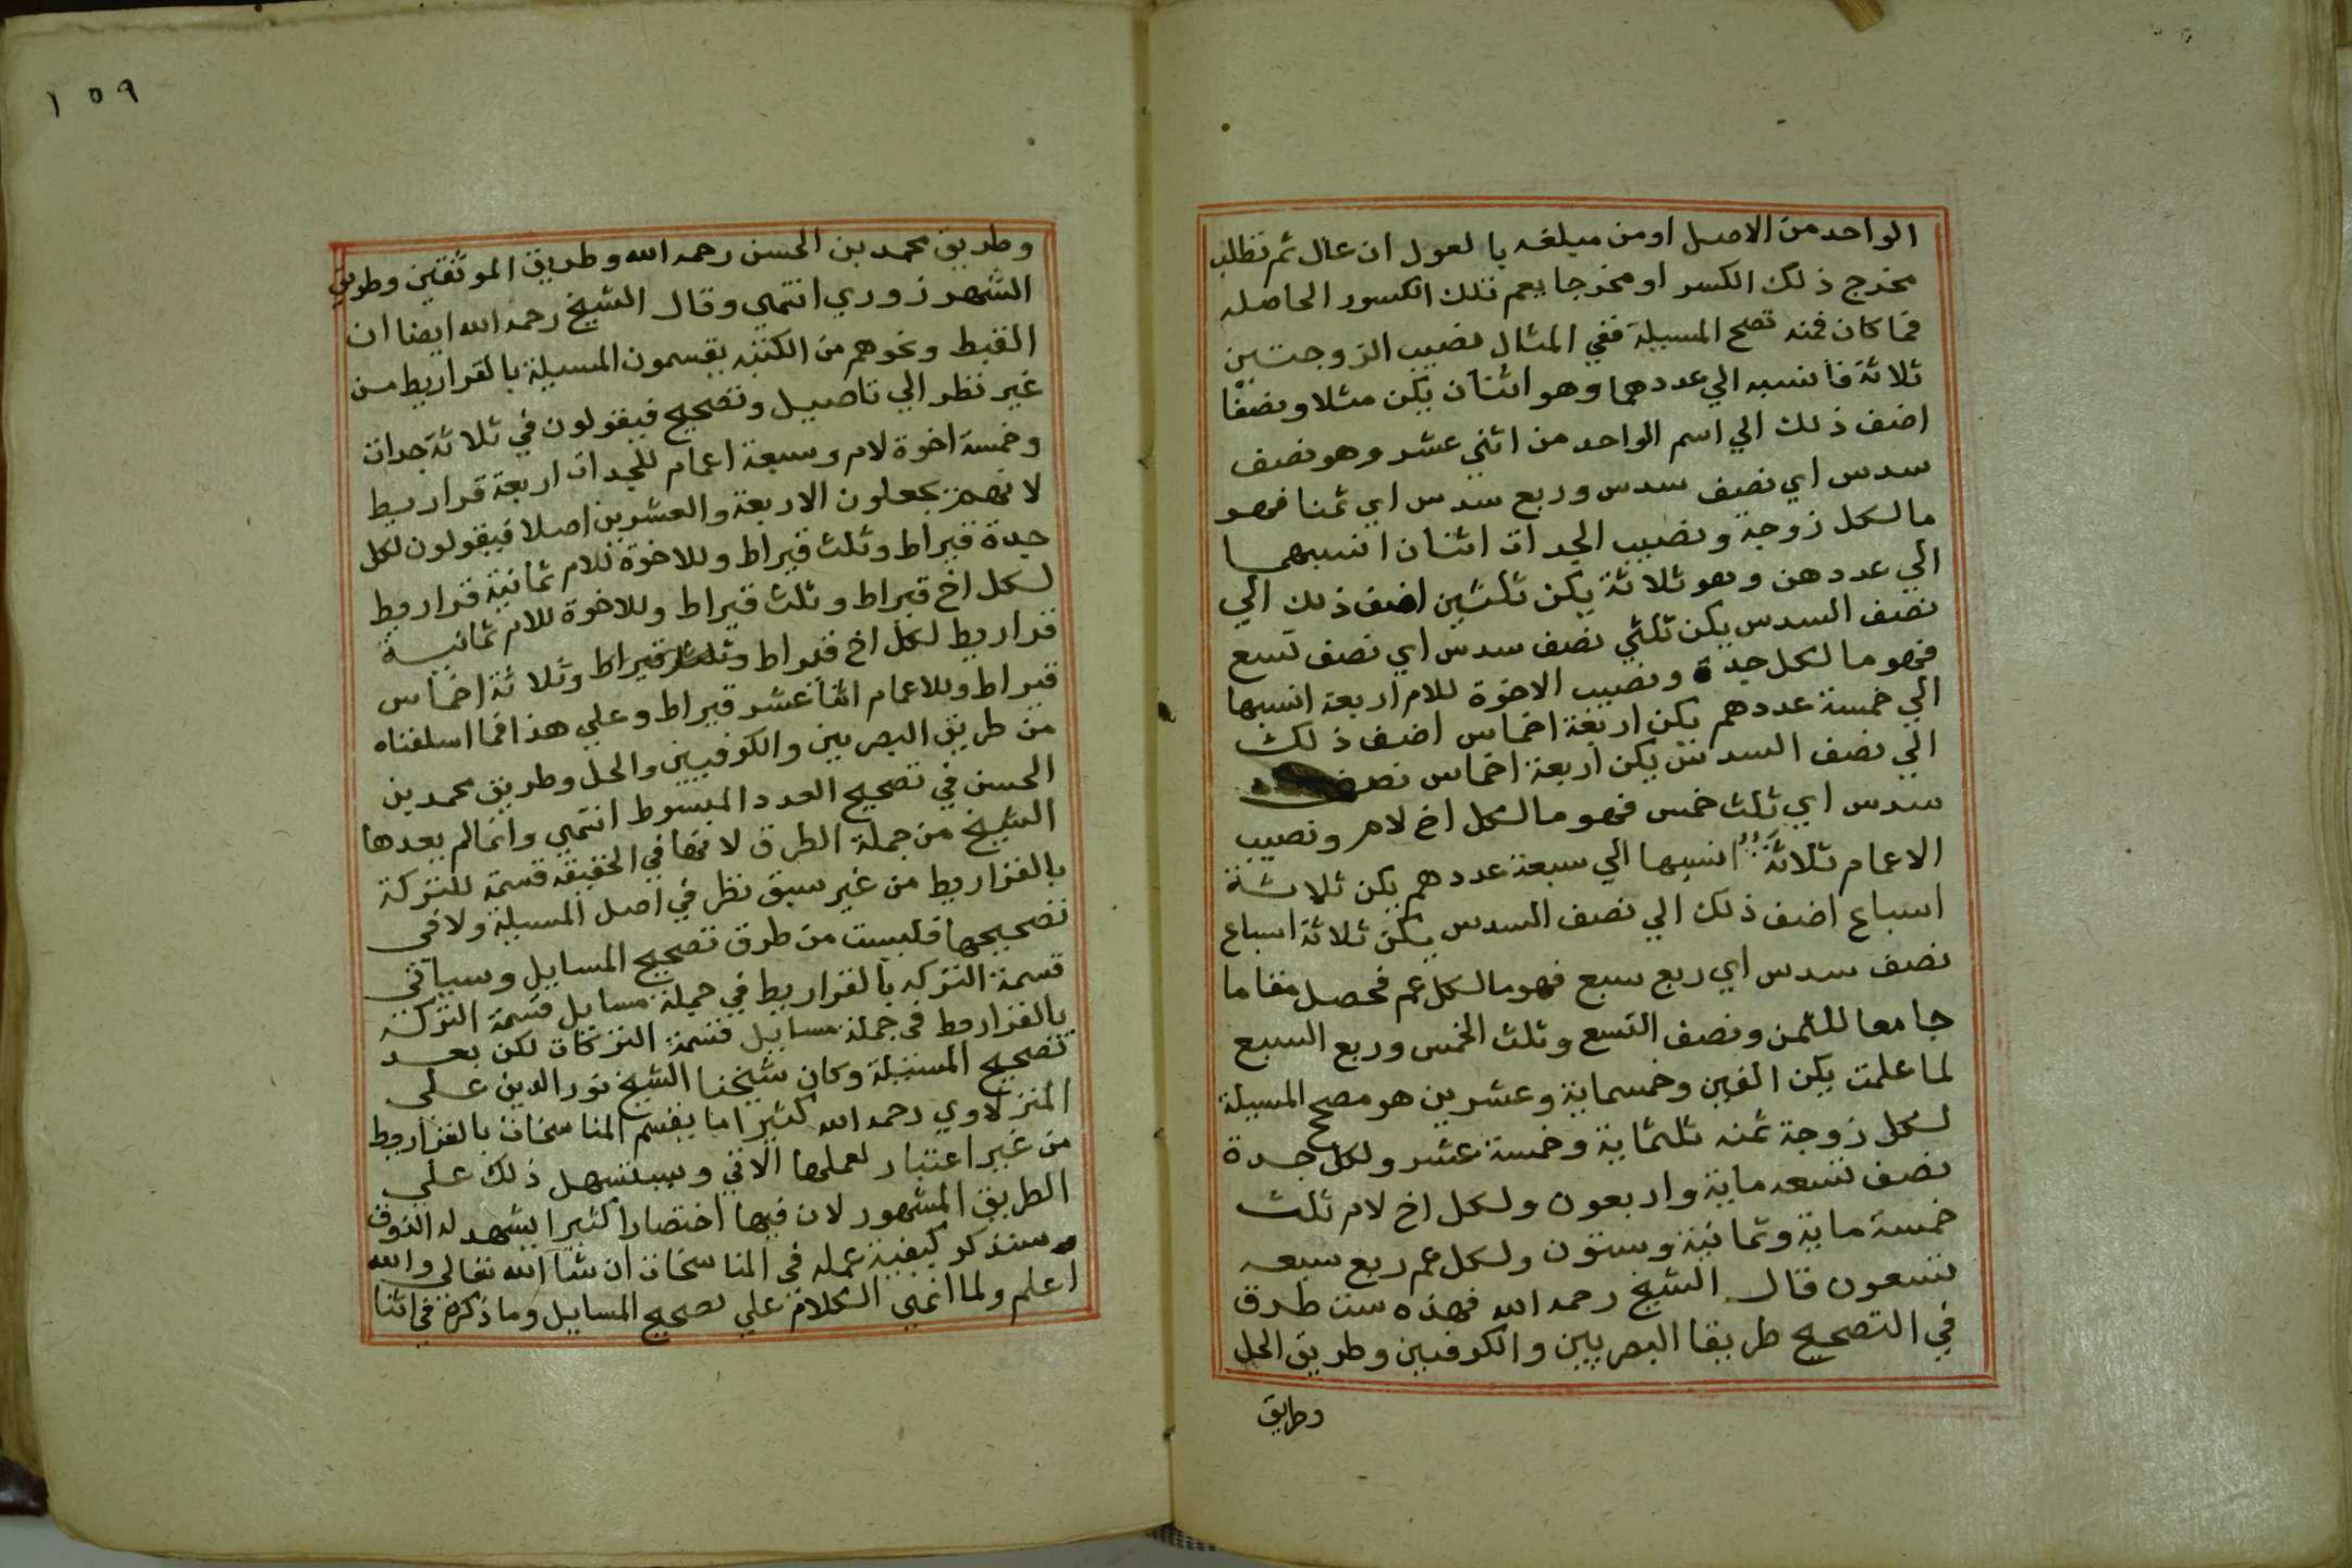 الواحد من الاصل او من مبلغه بالعول ان عال ثم تطلب
مخرج ذلك الكسر او مخرجا يعم تلك الكسور الحاصله
فما كان فمنه تصح المسيلة ففي المثال نصيب الزوجتين
ثلاثة فانسبه الي عددهما وهو اثنان يكن مثلا ونصفا
اضف ذلك الي اسم الواحد من اثني عشر وهو نصف
سدس اي نصف سدس وربع سدس اي ثمنا فهو
ما لكل زوجة ونصيب الجدات اثنان انسبهما
الي عددهن وهو ثلاثة يكن ثلثين اضف ذلك الي
نصف السدس يكن ثلثي نصف سدس اي نصف تسع
فهو ما لكل جدة ونصيب الاخوة للام اربعة انسبها
الي خمسة عددهم يكن اربعة اخماس اضف ذلك
الي نصف السدس يكن اربعة اخماس نصف
سدس اي ثلث خمس فهو ما لكل اخ لام ونصيب
الاعمام ثلاثة انسبها الي سبعة عددهم يكن ثلاثة
اسباع اضف ذلك الي نصف السدس يكن ثلاثة اسباع
نصف سدس اي ربع سبع فهو ما لكل عم فحصل مقاما
جامعا للثمن ونصف التسع وثلث الخمس وربع السبع
لما علمت يكن الفين وخمسماية وعشرين هو مصحح المسيلة
لكل زوجة ثمنه ثلثماية وخمسة عشر ولكل جدة
نصف تسعه ماية واربعون ولكل اخ لام ثلث
خمسه ماية وثمانية وستون ولكل عم ربع سبعه
تسعون قال الشيخ رحمه الله فهذه ست طرق
في التصحيح طريقا البصريين والكوفيين وطريق الحل
وطريق
١٥٩
وطريق محمد بن الحسن رحمه الله وطريق الموثقين وطريق
الشهرزوري انتهي وقال الشيخ رحمه الله ايضا ان
القبط ونحوهم من الكتبه يقسمون المسيلة بالقراريط من
غير نظر الي تاصيل وتصحيح فيقولون في ثلاثة جدات
وخمسة اخوة لام وسبعة اعمام للجدات اربعة قراريط
لانهم يجعلون الاربعة والعشرين اصلا فيقولون لكل
جدة قيراط وثلث قيراط وللاخوة للام ثمانية قراريط
لكل اخ قيراط وثلث قيراط وللاخوة للام ثمانية
قراريط لكل اخ قيراط وثلث قيراط وثلاثة اخماس
قيراط وللاعمام اثنا عشر قيراط وعلي هذا فما اسلفناه
من طريق البصريين والكوفيين والحل وطريق محمد بن
الحسن في تصحيح العدد المبسوط انتهي وانما لم يعدها
الشيخ من جملة الطرق لانها في الحقيقه قسمة للتركة
بالقراريط من غير سبق نظر في اصل المسيلة ولا في
تصحيحها فليست من طرق تصحيح المسايل وسياتي
قسمة التركه بالقراريط في جملة مسايل قسمة التركه
بالقراريط في جملة مسايل قسمة التركات لكن بعد
تصحيح المسيلة وكان شيخنا الشيخ نور الدين علي
المنزلاوي رحمه الله كثيرا ما يقسم المناسخات بالقراريط
من غير اعتبار لعملها الاتي وسيتسهل ذلك علي
الطريق المشهور لان فيها اختصارا كثيرا يشهد له الذوق
وسنذكر كيفية عمله في المناسخات ان شا الله تعالي والله
اعلم ولما انهي الكلام علي تصحيح المسايل وما ذكره في اثنا